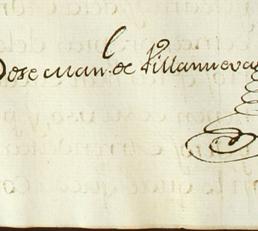 Jose Man.l de Villanueva